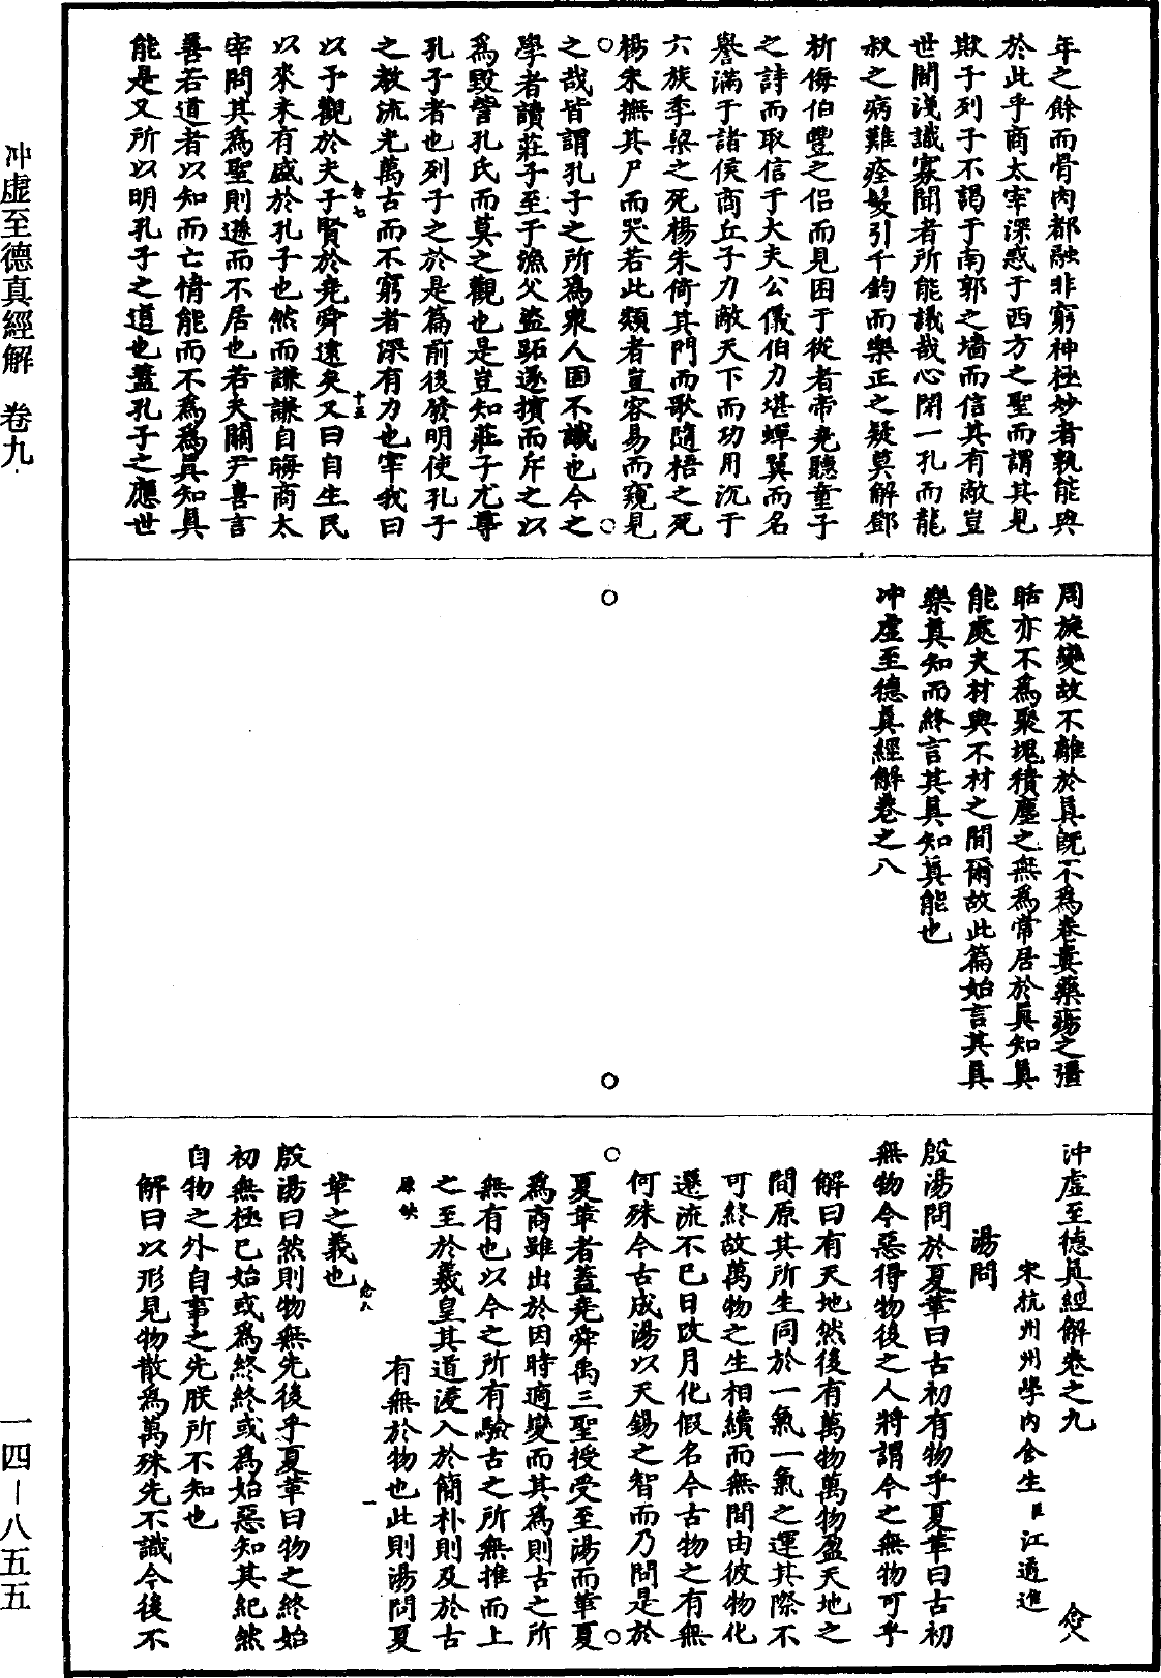 年之餘而骨肉都融非窮神極妙者孰能與
於此乎商太宰深惑于西方之聖而謂其見
欺子列子不謁于南郭之墻而信其有敵豈
世間淺識寡聞者所能議哉心閉一孔而龍
叔之病難痊髮引千鈞而樂正之疑莫解鄧
析侮伯豐之侣而見困于從者帝堯聽童子
之詩而取信于大夫公儀伯力堪蟬翼而名
譽滿于諸侯商丘子力敵天下而功用沉于
六族季梁之死楊朱倚其門而歌隨梧之死
楊朱撫其尸而哭若此類者豈容易而窺見
之哉皆謂孔子之所爲衆人固不識也今之
學者讀莊子至于漁父盜跖遂擯而斥之以
爲毀訾孔氏而莫之觀也是豈知莊子尤尊
孔子者也列子之於是篇前後發明使孔子
之教流光萬古而不窮者深有力也宰我曰
以予觀於夫子賢於堯舜遠矣又曰自生民
以來未有盛於孔子也然而謙謙自晦商太
宰問其爲聖則遜而不居也若夫關尹喜言
善若道者以知而亡情能而不爲爲眞知眞
能是又所以明孔子之道也蓋孔子之應世
周旋變故不離於眞既不爲卷婁藥瘍之彊
聒亦不爲聚塊積塵之無爲常居於眞知眞
能處夫材與不材之間爾故此篇始言其眞
樂眞知而終言其眞知眞能也
冲虛至德眞經解卷之八
冲虛至德眞經解卷之九
宋杭州州學内舍生臣江遹進
湯問
殷湯問於夏革曰古初有物乎夏革曰古初
無物今惡得物後之人將謂今之無物可乎
解曰有天地然後有萬物萬物盈天地之
間原其所生同於一氣一氣之運其際不
可終故萬物之生相續而無間由彼物化
遷流不已日改月化假名今古物之有無
何殊今古成湯以天錫之智而乃問是於
夏革者蓋堯舜禹三聖授受至湯而革夏
爲商雖出於因時適變而其爲則古之所
無有也以今之所有驗古之所無推而上
之至於羲皇其道浸入於簡朴則及於古
原缺
有無於物也此則湯問夏
革之義也
殷湯曰然則物無先後乎夏革曰物之終始
初無極已始或爲終終或爲始惡知其紀然
自物之外自事之先朕所不知也
解曰以形見物散爲萬殊先不識今後不
冲虛至德真經解 卷九
一四—八五五